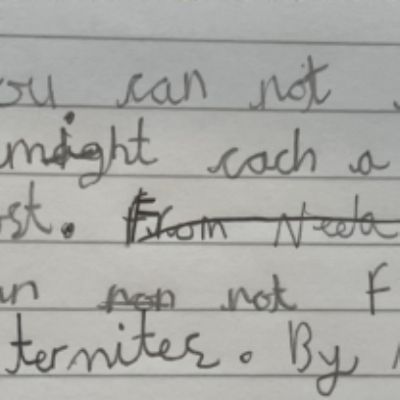 ou can not
might cach a
st. From Neela
n non not F
ternites. By